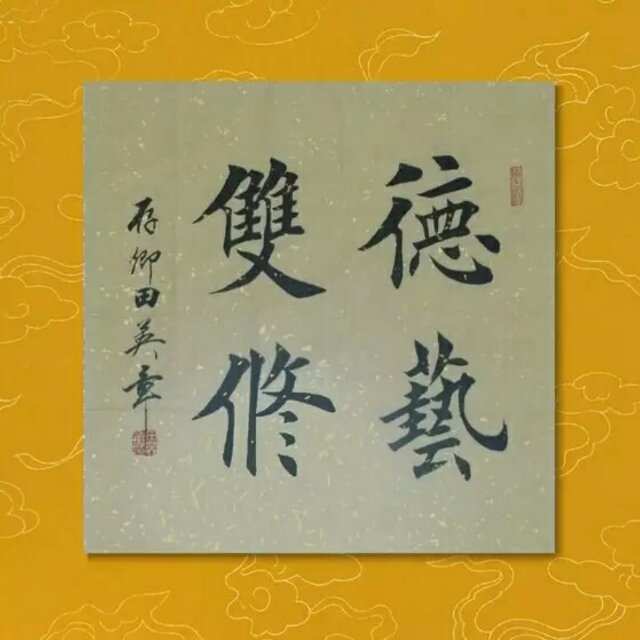 德藝
雙修
存卿田英章